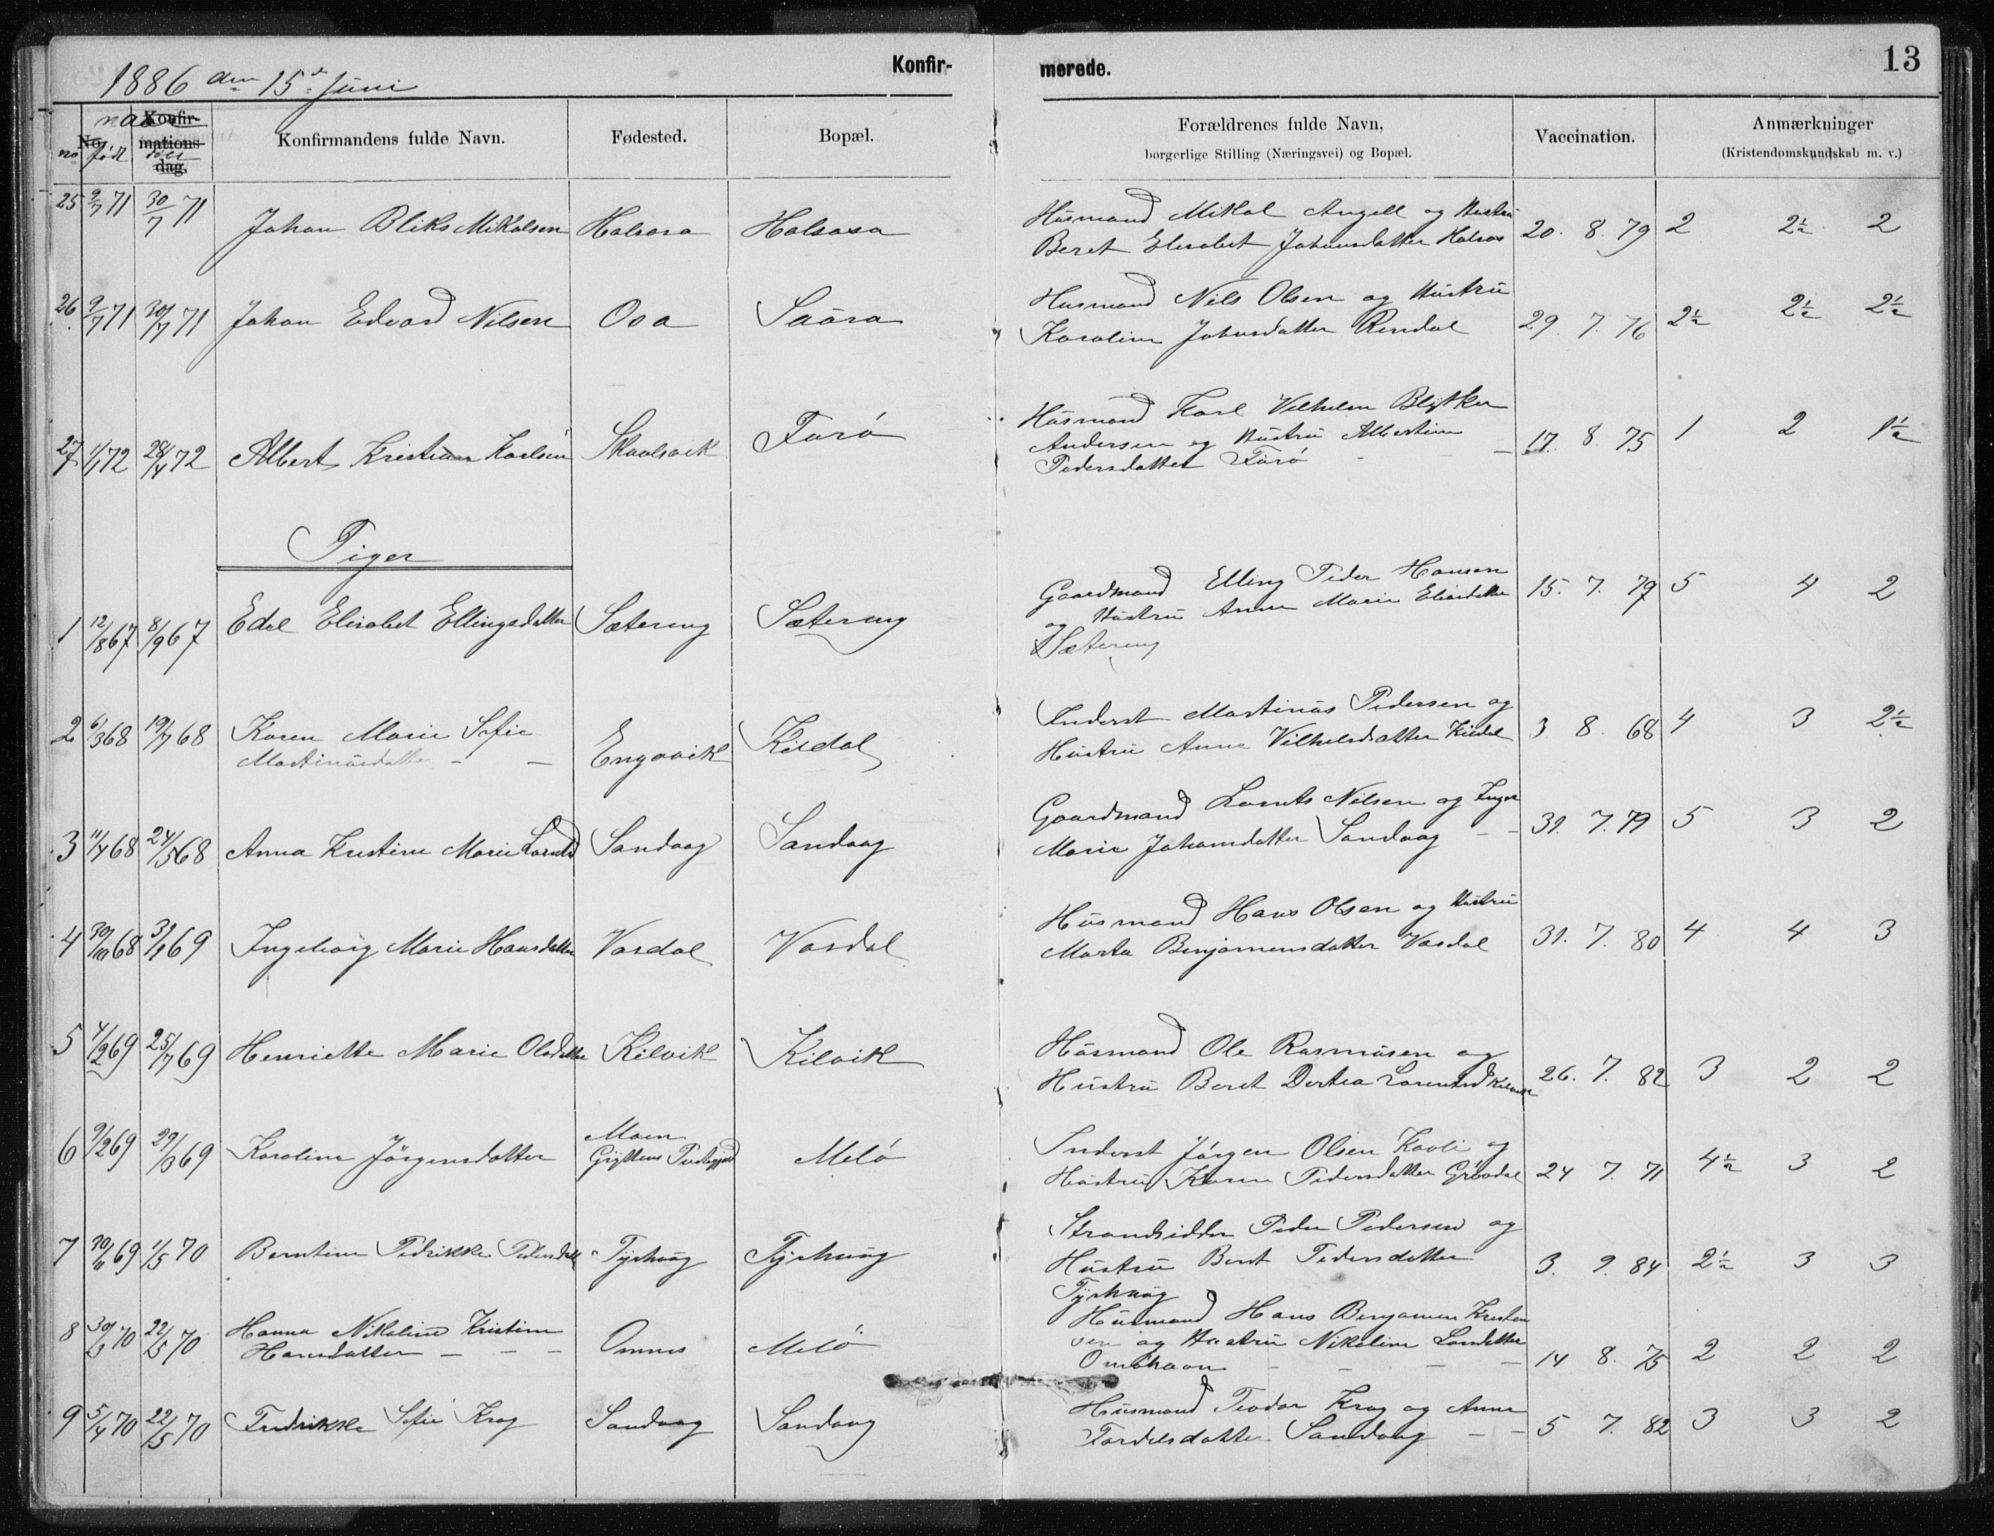 1886 den 15de Juni
Konfir-
merede.
13
No.
Konfir-
mations-
dag.
no
naar
født
døbt
Konfirmandens fulde Navn.
Fødested.
Bopæl.
Forældrenes fulde Navn,
borgerlige Stilling (Næringsvei) og Bopæl.
Vaccination.
Anmærkninger
(Kristendomskundskab m. v.)
25 9/7 71 30/7 71 Johan Bliks Mikalsen Halsosa Halsosa
Husmand Mikal Angell og Hustru
Beret Elisabet Johansdatter Halsos 20. 8. 79 2 2½ 2
26 9/7 71 30/7 71 Johan Edvard Nilsen Osa Saåra
Husmand Nils Olsen og Hustru
Karoline Johnsdatter Rendal 29. 7. 76 2½ 2½ 2½
27 1/1 72 28/4 72 Albert Kristian Karlsen Skaalsvik Farø
Husmand Karl Vilhelm Blytker
Andersen og Hustru Albertine
Pedersdatter Farø 17. 8. 75 1 2 1½
Piger
1 12/8 67 8/9 67 Edel Elisabet Ellingsdatter Sætereng Sætereng
Gaardmand Elling Peder Hansen
og Hustru Anne Marie Eliasdatter
Sætereng 15. 7. 79 5 4 2
2 6/3 68 19/7 68 Karen Marie Sofie
Martinusdatter – – Engavik Kildal
Inderst Martinus Pedersen og
Hustru Anne Vilhelsdatter Kildal 3 8. 68 4 3 2½
3 11/4 68 24/5 68 Anna Kristine Marie Lorntsd Sandvaag Sandvaag
Gaardmand Lornts Nilsen og Inger
Marie Johansdatter Sandvaag – – 31. 7. 79 5 3 2
4 30/10 68 31/1 69 Ingeborg Marie Hansdatter Vasdal Vasdal
Husmand Hans Olsen og Hustru
Marta Benjamensdatter Vasdal 31. 7. 80 4 4 3
5 4/2 69 25/7 69 Henriette Marie Olsdatter Kilvik Kilvik
Husmand Ole Rasmusen og
Hustru Beret Dortea Lorentsd Kilvik 26. 7. 82 3 2 2
6 9/2 69 29/3 69 Karoline Jörgensdatter Moen
Gryttens Prestegjeld Melö
Inderst Jörgen Olsen Kavli og
Hustru Karen Pedersdatter Grövdal 24 7. 71 4½ 3 2
7 30/11 69 1/5 70 Berntine Fedrikke Pedersdatt Tyrhaug Tyrhaug
Strandsidder Peder Pedersen og
Hustru Beret Pedersdatter
Tyrhaug 3. 9. 84 2½ 3 3
8 30/3 70 22/5 70 Hanna Nikoline Kristine
Hansdatter – – – Omnes Melö
Husmand Hans Benjamen Kristen
sen og Hustru Nikoline Larsdatter
Omshavn – – – – 14 8. 75 2 2 2
9 5/4 70 22/5 70 Fredrikke Sofie Krog Sandvaag Sandvaag
Husmand Teodor Krog og Anne
Tordelsdatter Sandvaag – – 5 7. 82 3 3 2